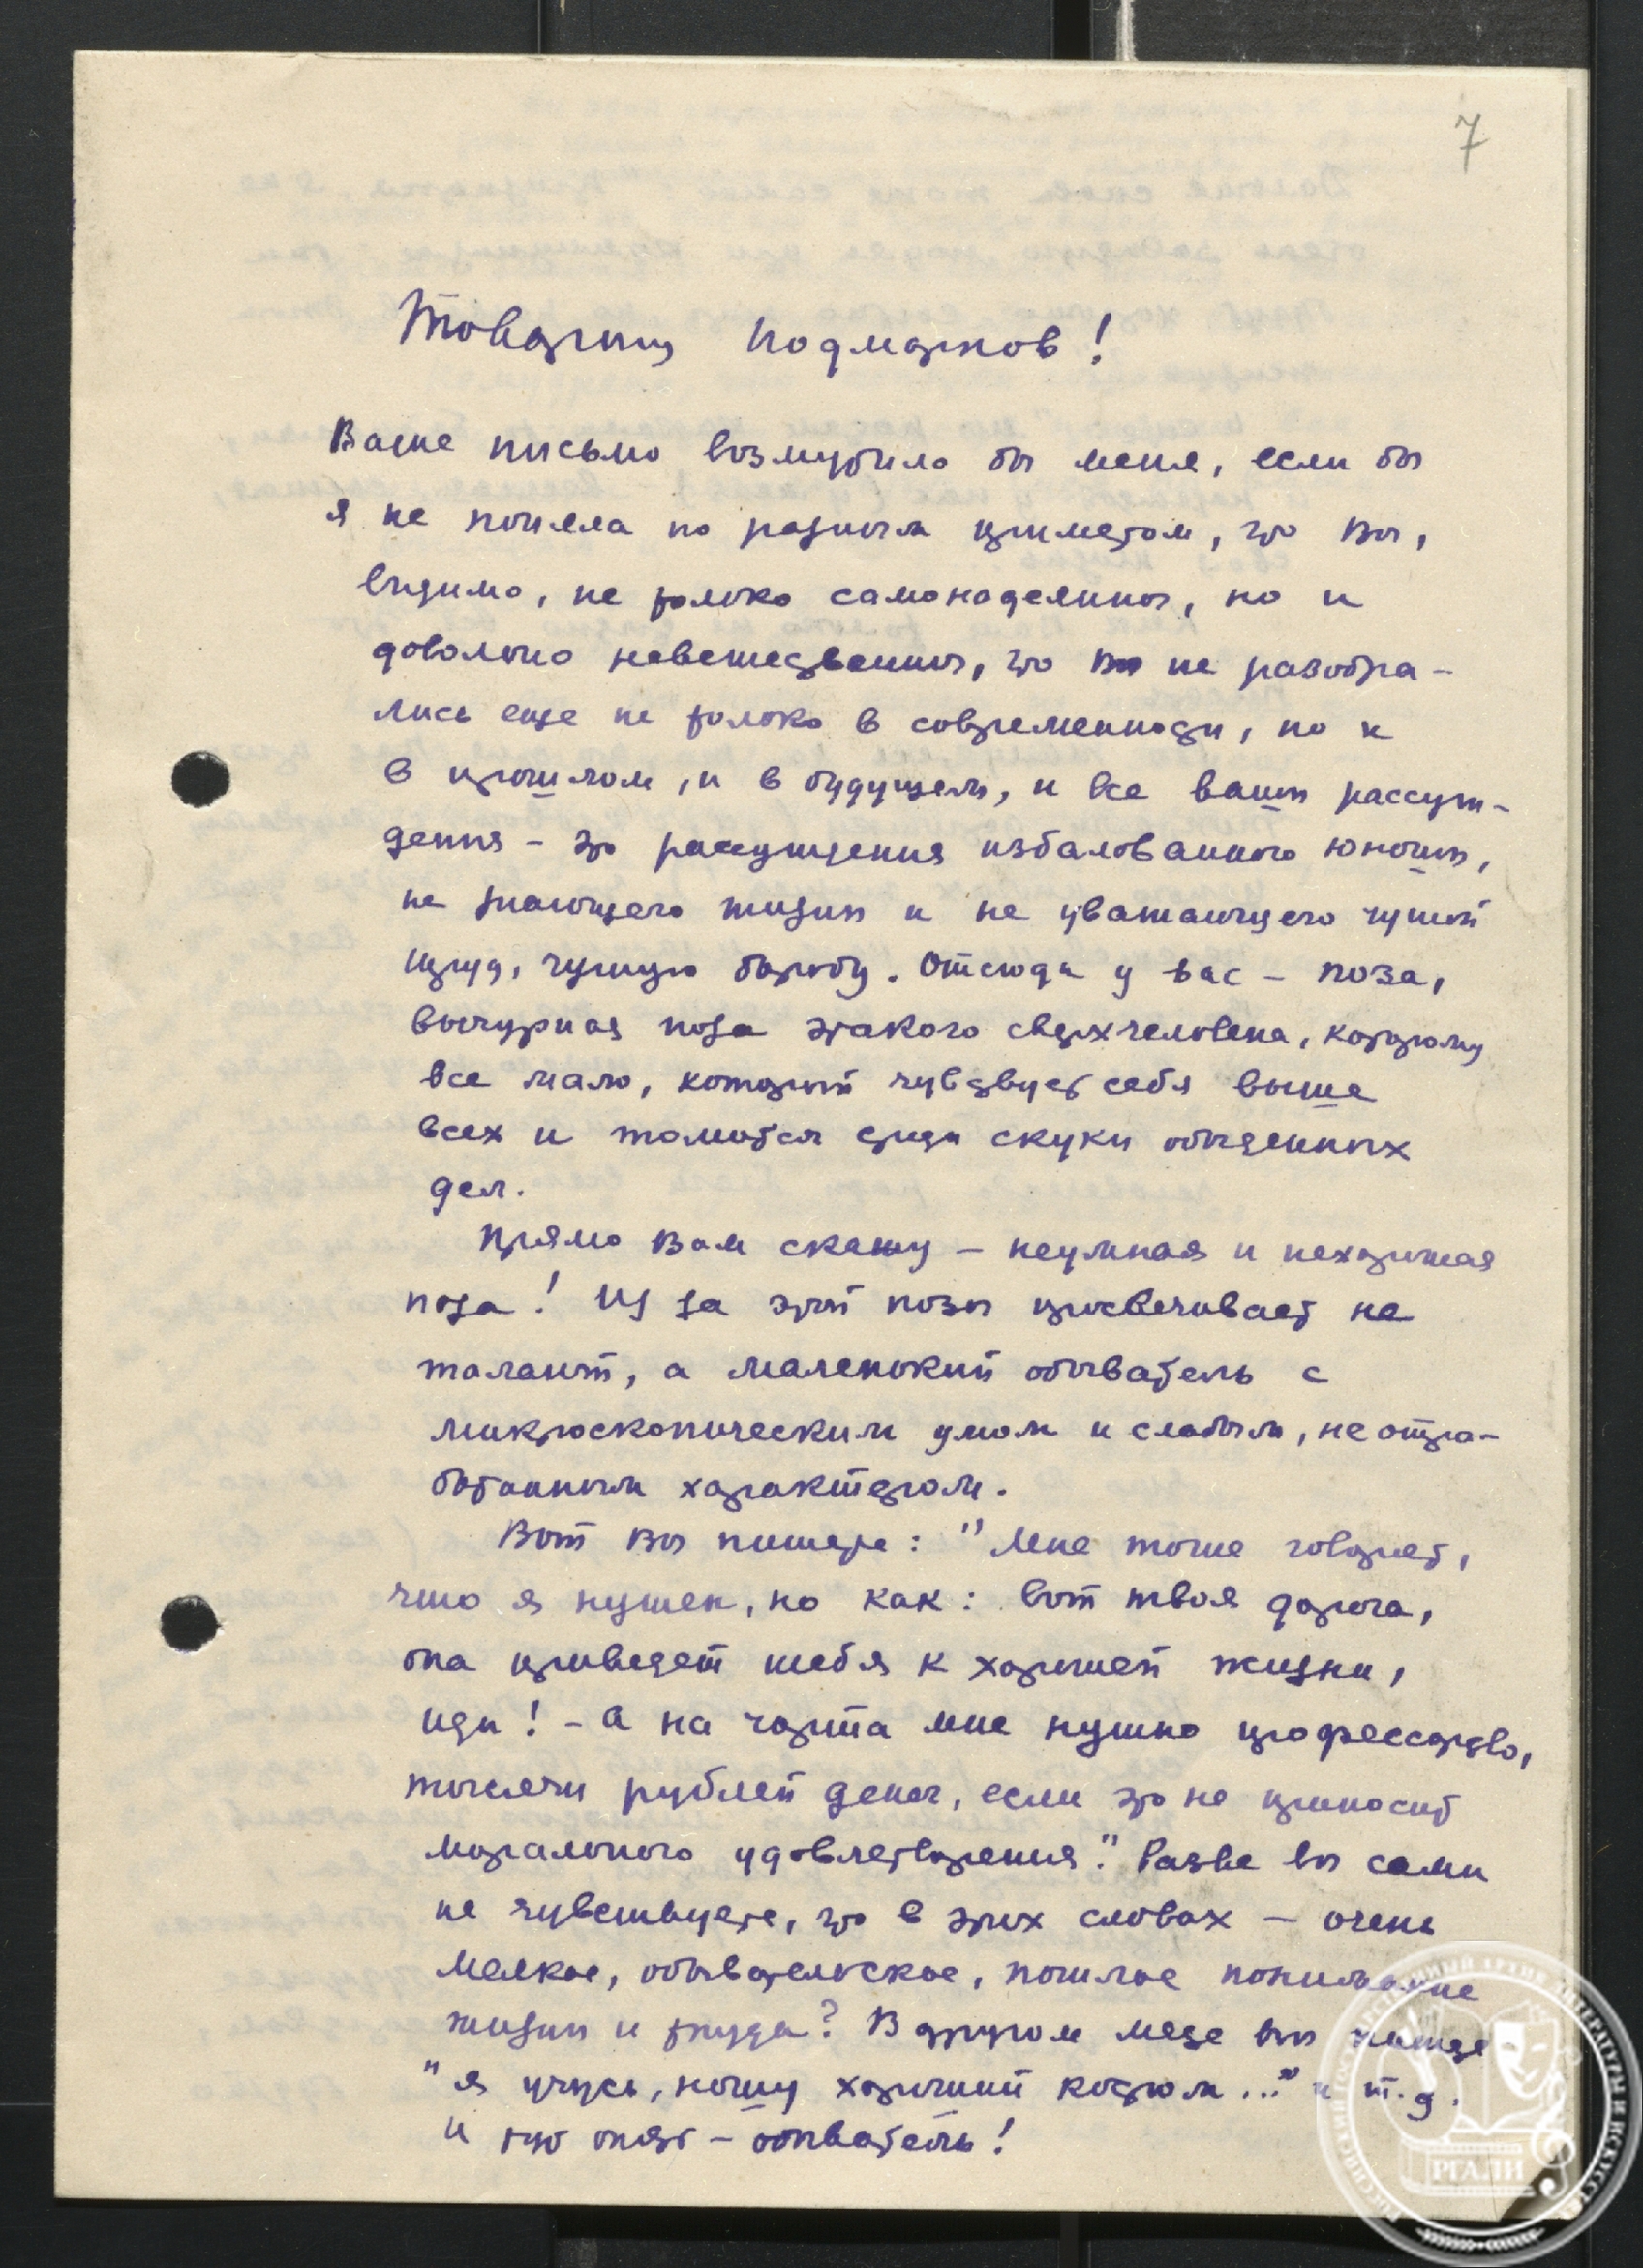 7
Товарищ Подмарков!
Ваше письмо возмутило бы меня, если бы
я не поняла по разным приметам, что Вы,
видимо, не только самонадеянны, но и
довольно невежественны, что Вы не разобра-
лись еще не только в современности, но и
в прошлом, и в будущем, и все ваши рассуж-
дения – это рассуждения избалованного юноши,
не знающего жизни и не уважающего чужой
труд, чужую борьбу. Отсюда у вас – поза,
вычурная поза этакого сверхчеловека, которому
все мало, который чувствует себя выше
всех и томится среди скуки обыденных
дел.
Прямо Вам скажу – неумная и нехорошая
поза! Из за этой позы просвечивает не
талант, а маленький обыватель с
микроскопическим умом и слабым, не отра-
ботанным характером.
Вот вы пишете: "Мне тоже говорят,
что я нужен, но как: вот твоя дорога,
она приведет тебя к хорошей жизни,
иди! – А на чорта мне нужно профессорство,
тысячи рублей денег, если это не приносит
морального удовлетворения." Разве вы сами
не чувствуете, что в этих словах – очень
мелкое, обывательское, пошлое понимание
жизни и труда? В другом месте вы пишете
"я учусь, ношу хороший костюм..." и т.д.
И тут опять – обыватель!
РГАЛИ